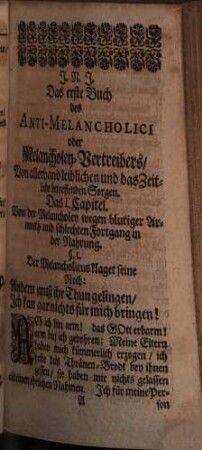 J. N. J.
Das erste Buch
des
ANTI-MELANCHOLICI
oder
Melancholey-Vertreibers/
Von allerhand leiblichen und das Zeit-
liche betreffenden Sorgen.
Das I. Capitel.
Von der Melancholey wegen blutiger Ar-
muth und schlechten Fortgang in
der Nahrung.
§. 1.
Der Melancholicus klaget seine
Noth:
Andern muß ihr Thun gelingen/
Ich kan gar nichts für mich bringen!
ACh ich bin arm! das GOtt erbarm!
arm bin ich gebohren: Meine Eltern
haben mich kümmerlich erzogen/ ich
habe das Thränen-Brodt bey ihnen
gessen/ sie haben mir nichts gelassen
als einen ehrlichen Nahmen. Ich für meine Per-
A son